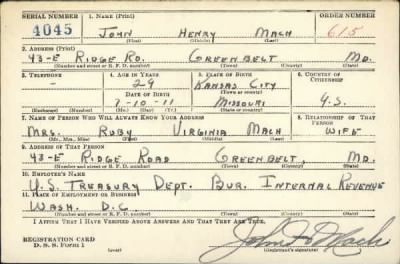 SERIAL NUMBER 1. NAME (Print) ORDER NUMBER
4045 JOHN HENRY MACH 615
(First) (Middle) (Last)
2. ADDRESS (Print)
43-E RIDGE RD. GREENBELT MD.
(Number and street or R. F. D. number) (Town) (County) (State)
3. TELEPHONE 4. AGE IN YEARS 5. PLACE OF BIRTH 6. COUNTRY OF CITIZENSHIP
- 29 KANSAS CITY
DATE OF BIRTH (Town or county)
7-10-11 MISSOURI U.S.
(Exchange) (Number) (Mo.) (Day) (Yr.) (State or country)
7. NAME OF PERSON WHO WILL ALWAYS KNOW YOUR ADDRESS 8. RELATIONSHIP OF THAT PERSON
MRS. RUBY VIRGINIA MACH WIFE
(Mr., Mrs., Miss) (First) (Middle) (Last)
9. ADDRESS OF THAT PERSON
43-E RIDGE ROAD GREENBELT, MD.
(Number and street or R. F. D. number) (Town) (County) (State)
10. EMPLOYER'S NAME
U.S. TREASURY DEPT. BUR. INTERNAL REVENUE
11. PLACE OF EMPLOYMENT OR BUSINESS
WASH. D.C.
(Number and street or R. F. D. number) (Town) (County) (State)
I AFFIRM THAT I HAVE VERIFIED ABOVE ANSWERS AND THAT THEY ARE TRUE.
REGISTRATION CARD
D. S. S. FORM 1 (over) John H Mach
(Registrant's signature)